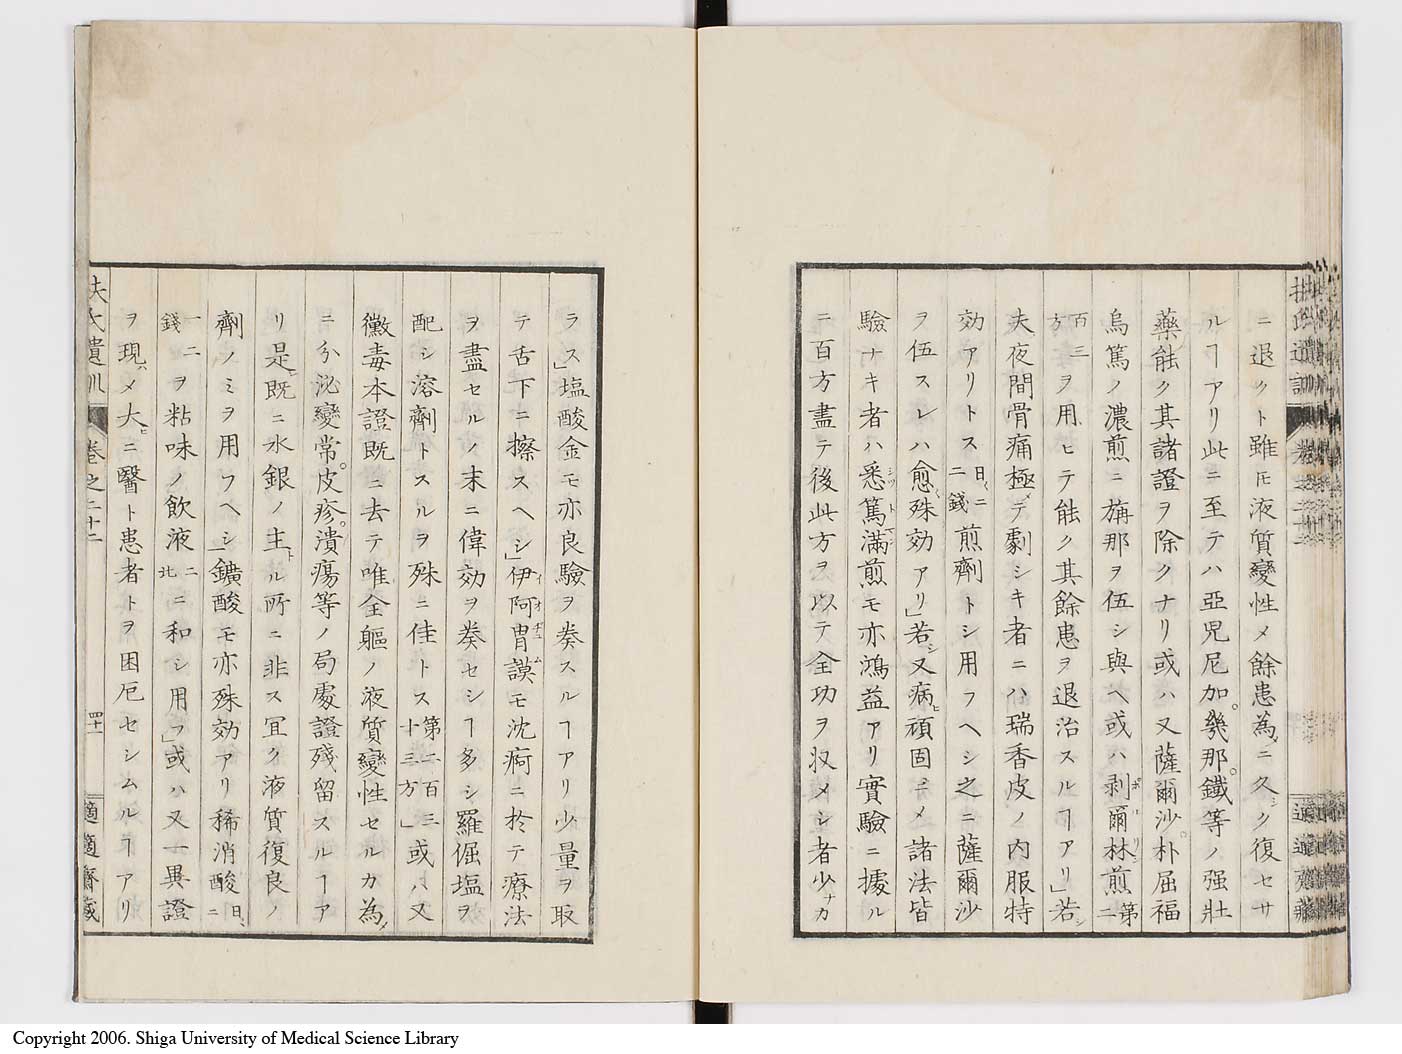 ニ退クト雖𪜈液質變性メ餘患為ニ久シク復セサ
ルヿアリ此ニ至テハ亞児尼加。幾那。鐵等ノ强壯
藥能ク其諸證ヲ除クナリ或ハ又薩爾沙。朴屈福
烏篤ノ濃煎ニ旃那ヲ伍シ與ヘ或ハ剥爾林煎第二
百三方ヲ用ヒテ能ク其餘患ヲ退治スルヿアリ」若シ
夫夜間骨痛極メテ劇シキ者ニハ瑞香皮ノ内服特
効アリトス日ニ二錢煎劑トシ用フヘシ之ニ薩爾沙
ヲ伍スレハ愈殊効アリ」若シ又病頑固ニメ諸法皆
驗ナキ者ハ悉篤滿煎モ亦鴻益アリ實驗ニ據ル
ニ百方盡テ後此方ヲ以テ全功ヲ収メシ者少ナカ
ラス」塩酸金モ亦良驗ヲ奏スルヿアリ少量ヲ取
テ舌下ニ擦スヘシ」伊阿胄謨モ沈痾ニ於テ療法
ヲ盡セルノ末ニ偉効ヲ奏セシヿ多シ羅倔塩ヲ
配シ溶劑トスルヲ殊ニ佳トス第二百三十三方」或ハ又
黴毒本證既ニ去テ唯全軀ノ液質變性セルカ為メ
ニ分泌變常。皮疹。潰瘍等ノ局處證殘留スルヿア
リ是既ニ水銀ノ主トル所ニ非ス冝ク液質復良ノ
劑ノミヲ用フヘシ」鑛酸モ亦殊効アリ稀消酸日ニ
一錢ニヲ粘味ノ飲液二北ニ和シ用フ」或ハ又一異證
ヲ現ハメ大ヒニ醫ト患者トヲ困厄セシムルヿアリ
扶氏遺訓 卷之二十二 四十一 適適齋藏
Copyright 2006. Shiga University of Medical Science Library